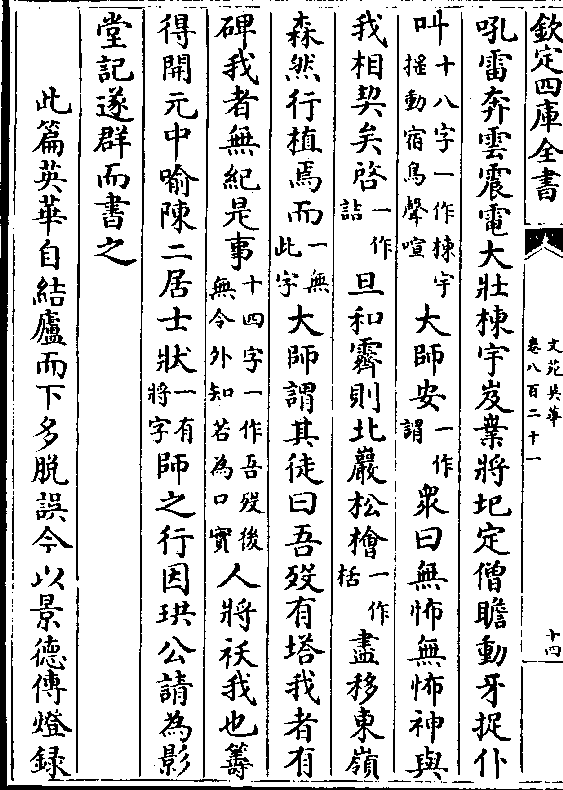 欽定四庫全書
文苑英華
卷八百二十一
十四
吼雷奔雲震電大壯棟宇岌業將圯定僧瞻動牙捉仆
叫十八字一作棟宇摇動宿鳥聲喧大師安一作謂衆曰無怖無怖神與
我相契矣啓一作詰旦和霽則北巖松檜一作栝盡移東嶺
森然行植焉而一無此字大師謂其徒曰吾殁有塔我者有
碑我者無紀是事十四字一作吾殁後無令外知若為口實人將祅我也籌
得開元中喻陳二居士狀一有將字師之行因珙公請為影
堂記遂群而書之
此篇英華自結廬而下多脱誤今以景德傳燈録